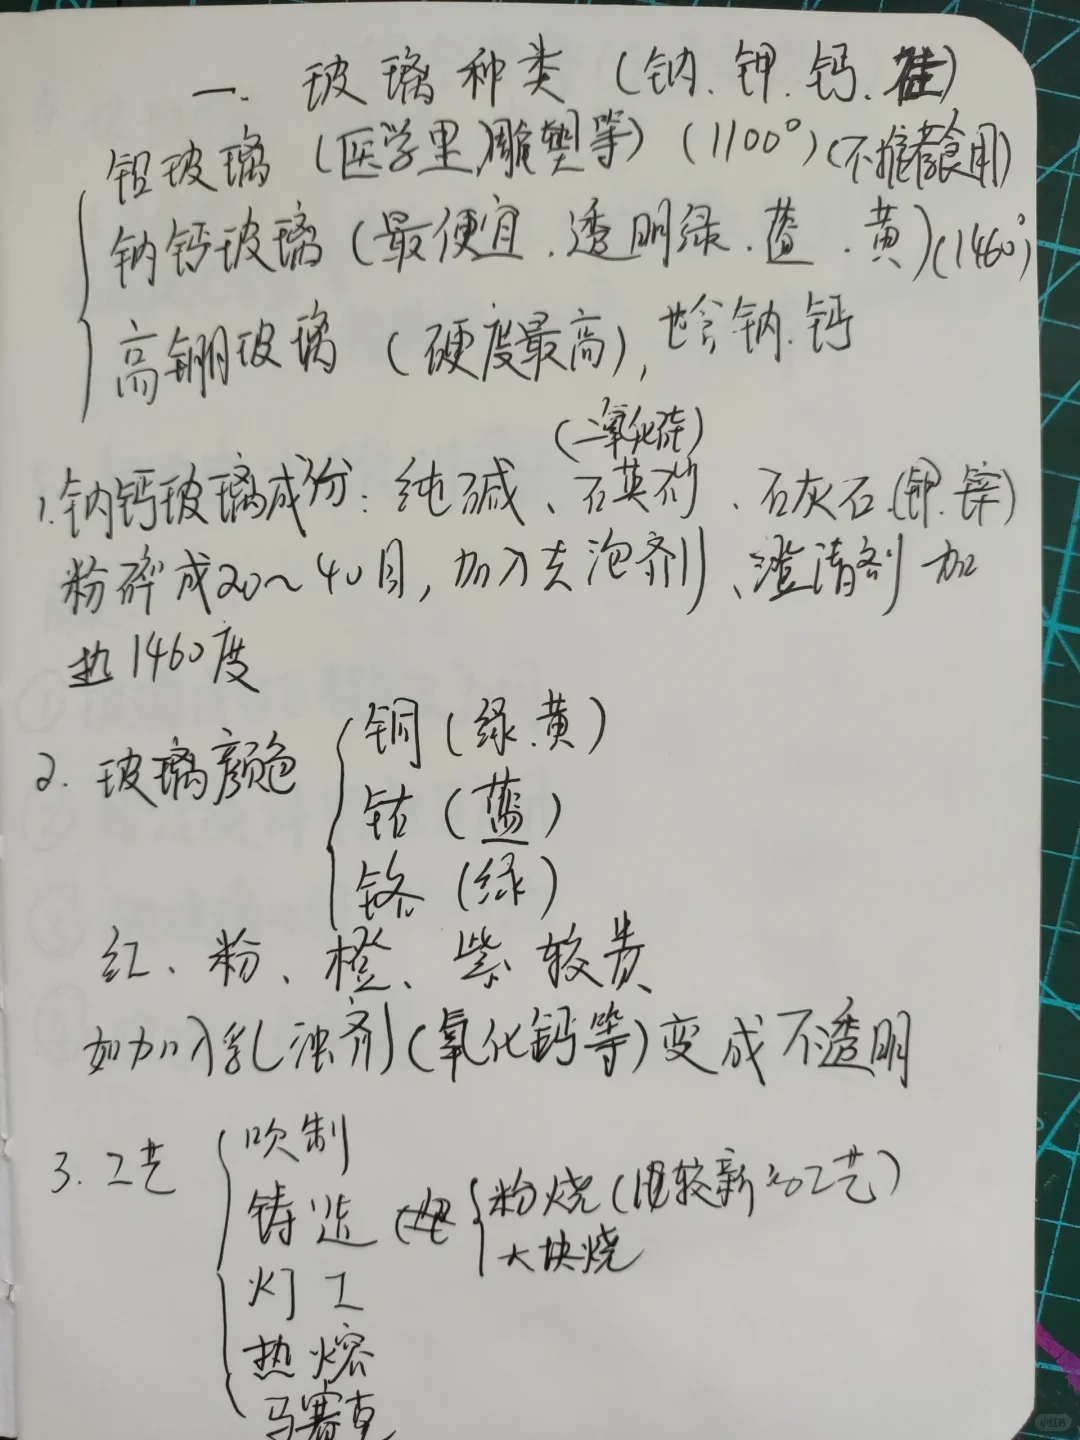 一. 玻璃种类（钠.钾.钙.硅）
铅玻璃（医学里,雕塑等）（1100°）(不推荐食用)
钠钙玻璃（最便宜.透明绿.蓝.黄）(1460°)
高硼玻璃（硬度最高）, 也含钠.钙
（二氧化硅）
1.钠钙玻璃成份：纯碱、石英砂、石灰石.(钾.锌)
粉碎成20~40目，加入去泡剂、澄清剂 加
热1460度
2. 玻璃颜色
铜（绿.黄）
钴（蓝）
铬（绿）
红、粉、橙、紫较贵
如加入乳浊剂(氧化钙等)变成不透明
3.工艺
吹制
铸造
粉烧(比较新的工艺)
大块烧
灯工
热熔
马赛克
小红书